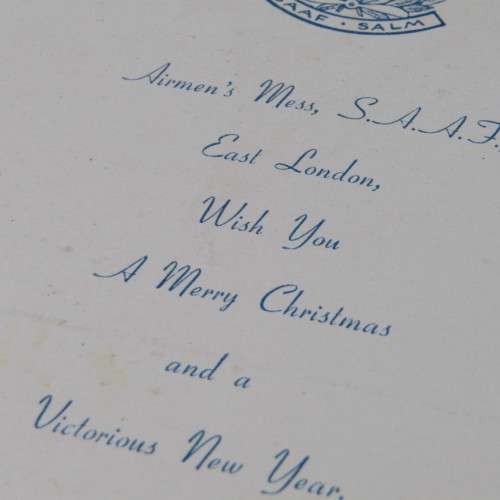 AAF · SALM
Airmen's Mess, S.A.A.F.
East London,
Wish You
A Merry Christmas
and a
Victorious New Year.